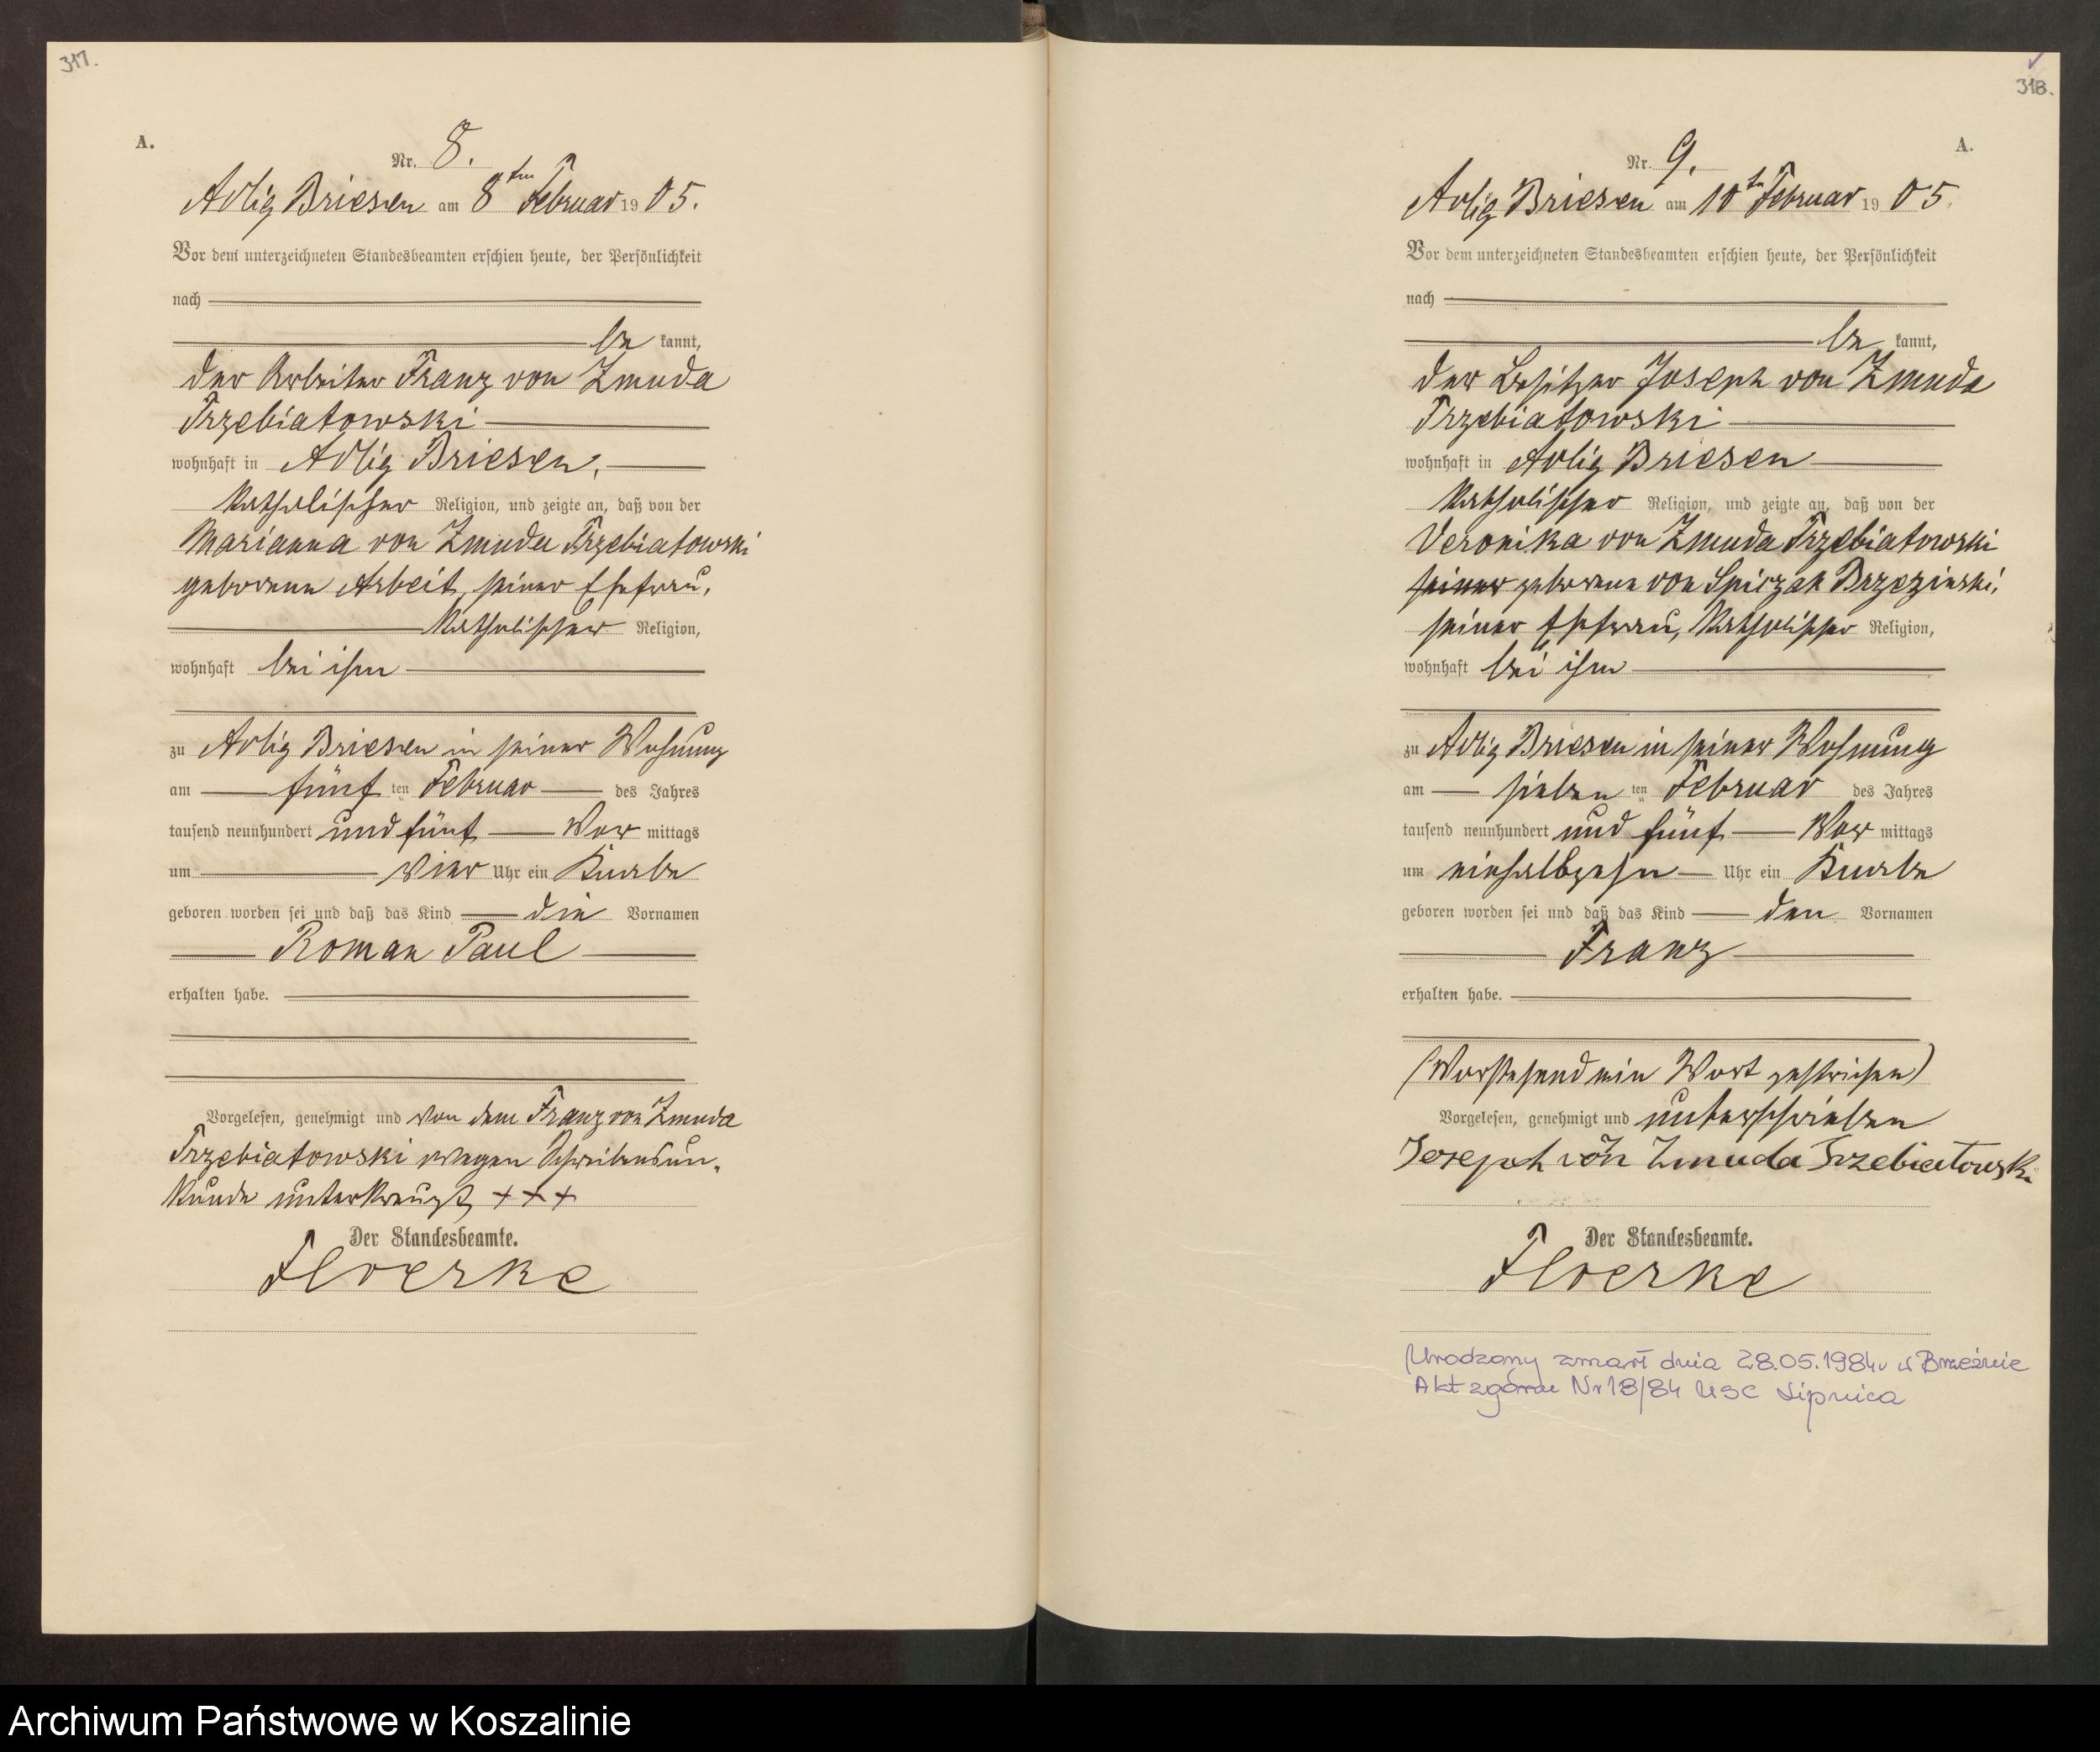 317.
A.
Nr. 8.
Adlig Briesen am 8ten Februar 1905.
Vor dem unterzeichneten Standesbeamten erschien heute, der Persönlichkeit
nach
be kannt,
der Arbeiter Franz von Zmuda
Trzebiatowski
wohnhaft in Adlig Briesen,
katholischer Religion, und zeigte an, daß von der
Marianna von Zmuda Trzebiatowski
geborene Arbeit, seiner Ehefrau,
katholischer Religion,
wohnhaft bei ihm
zu Adlig Briesen in seiner Wohnung
am fünf ten Februar des Jahres
tausend neunhundert und fünf Vor mittags
um vier Uhr ein Knabe
geboren worden sei und daß das Kind die Vornamen
Roman Paul
erhalten habe.
Vorgelesen, genehmigt und von dem Franz von Zmuda
Trzebiatowski wegen Schreibensun-
kunde unterkreuzt + + +
Der Standesbeamte.
Floerke
318.
A.
Nr. 9.
Adlig Briesen am 10ten Februar 1905.
Vor dem unterzeichneten Standesbeamten erschien heute, der Persönlichkeit
nach
be kannt,
der Besitzer Joseph von Zmuda
Trzebiatowski
wohnhaft in Adlig Briesen
katholischer Religion, und zeigte an, daß von der
Veronika von Zmuda Trzebiatowski
seiner geborene von Spiczak Brzezinski,
seiner Ehefrau, katholischer Religion,
wohnhaft bei ihm
zu Adlig Briesen in seiner Wohnung
am sieben ten Februar des Jahres
tausend neunhundert und fünf Vor mittags
um einhalbzehn Uhr ein Knabe
geboren worden sei und daß das Kind den Vornamen
Franz
erhalten habe.
(Vorstehend ein Wort gestrichen)
Vorgelesen, genehmigt und unterschrieben
Joseph von Zmuda Trzebiatowski
Der Standesbeamte.
Floerke
Urodzony zmarł dnia 28.05.1984r w Brzeźnie
Akt zgonu Nr 18/84 USC Lipnica
Archiwum Państwowe w Koszalinie